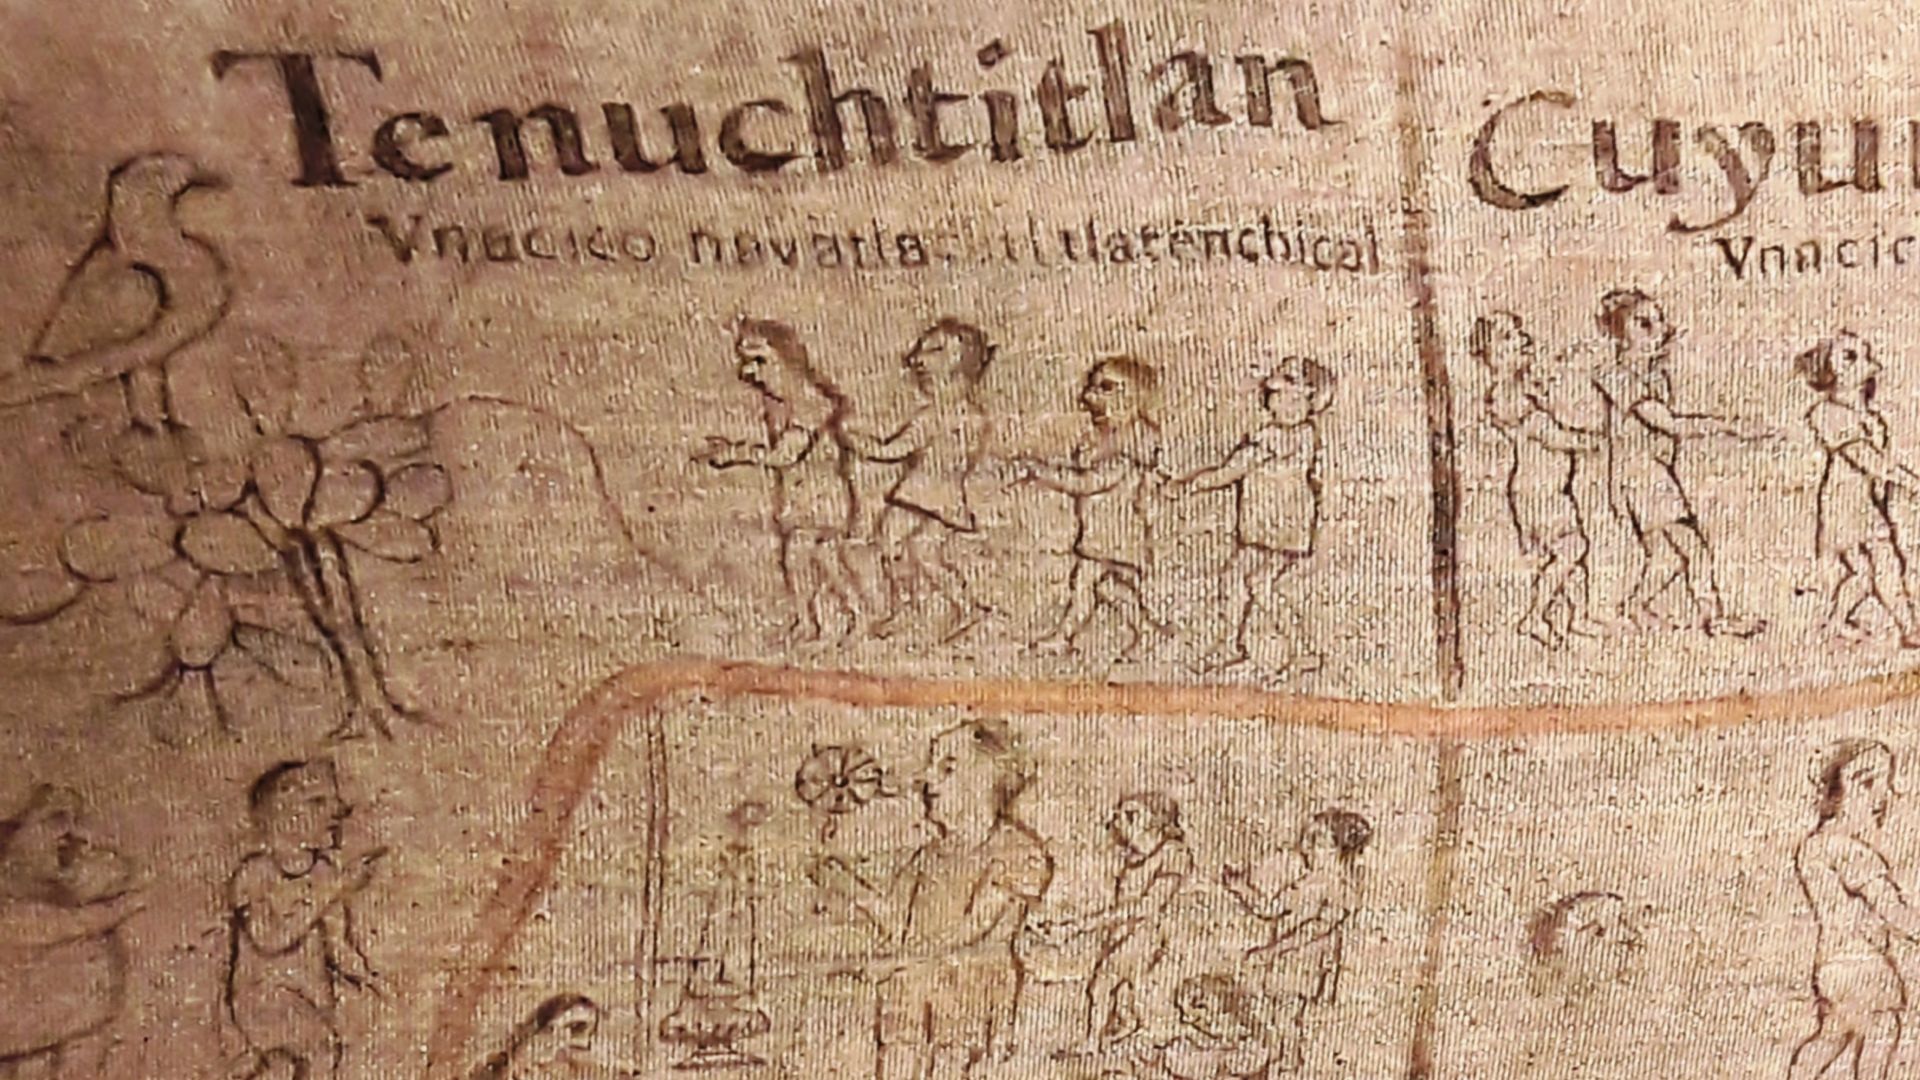 Tenuchtitlan
Vnacico tlatenchical
Cuyu
Vnacic